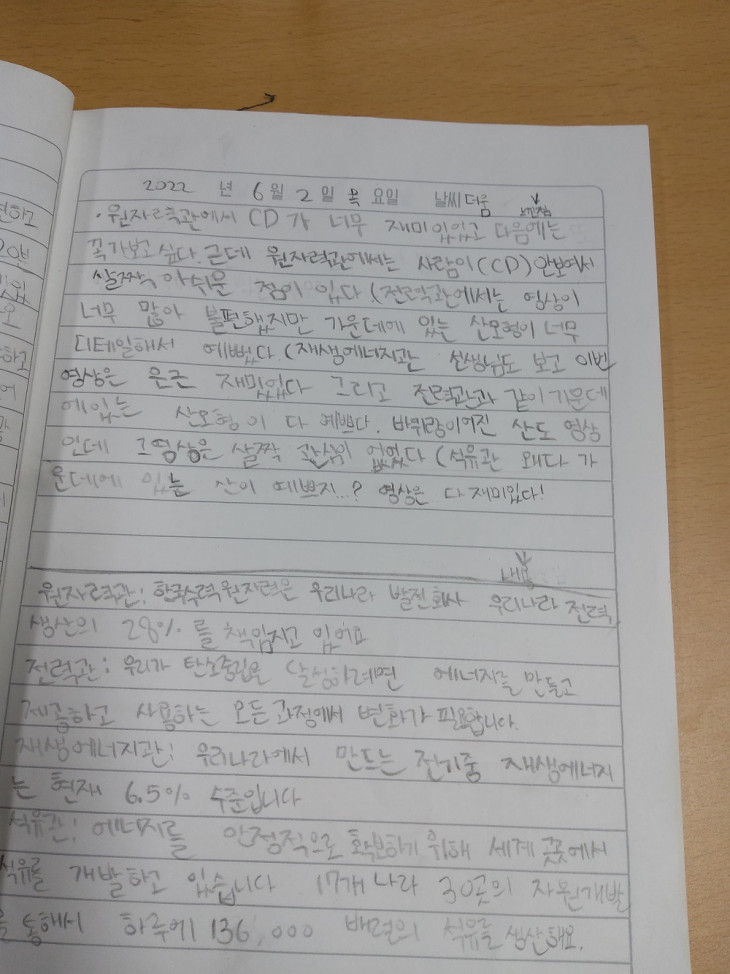 2022 년 6월 2일 목요일 날씨 더움
· 원자력관에서 CD가 너무 재미있있고 다음에는
꼭가보고 싶다. 근데 원자력관에서는 사람이 (CD) 안보여서
살짝 아쉬운 점이 있다 (전력관에서는 영상이
너무 많아 불편했지만 가운데에 있는 산모형이 너무
디테일해서 예뻤다 (재생에너지관 선생님도 보고 이번
영상은 은근 재밌있다 그리고 전력관과 같이 가운데
에있는 산모형이 다 예쁘다. 바뀌랑이어진 산도 영상
인데 그영상은 살짝 관심이 없었다 (석유관 왜다 가
운데에 있는 산이 예쁘지..? 영상은 다 재미있다!
내용
원자력관: 한국수력원자력은 우리나라 발전회사 우리나라 전력
생산의 28%를 책임지고 있어요
전력관: 우리가 탄소중립을 달성하려면 에너지를 만들고
제공하고 사용하는 모든 과정에서 변화가 필요합니다.
재생에너지관: 우리나라에서 만드는 전기중 재생에너지
는 현재 6.5% 수준입니다
석유관: 에너지를 안정적으로 확보하기 위해 세계 곳곳에서
석유를 개발하고 있습니다 17개 나라 30곳의 자원개발
을 통해서 하루에 136,000 배럴의 석유를 생산해요.